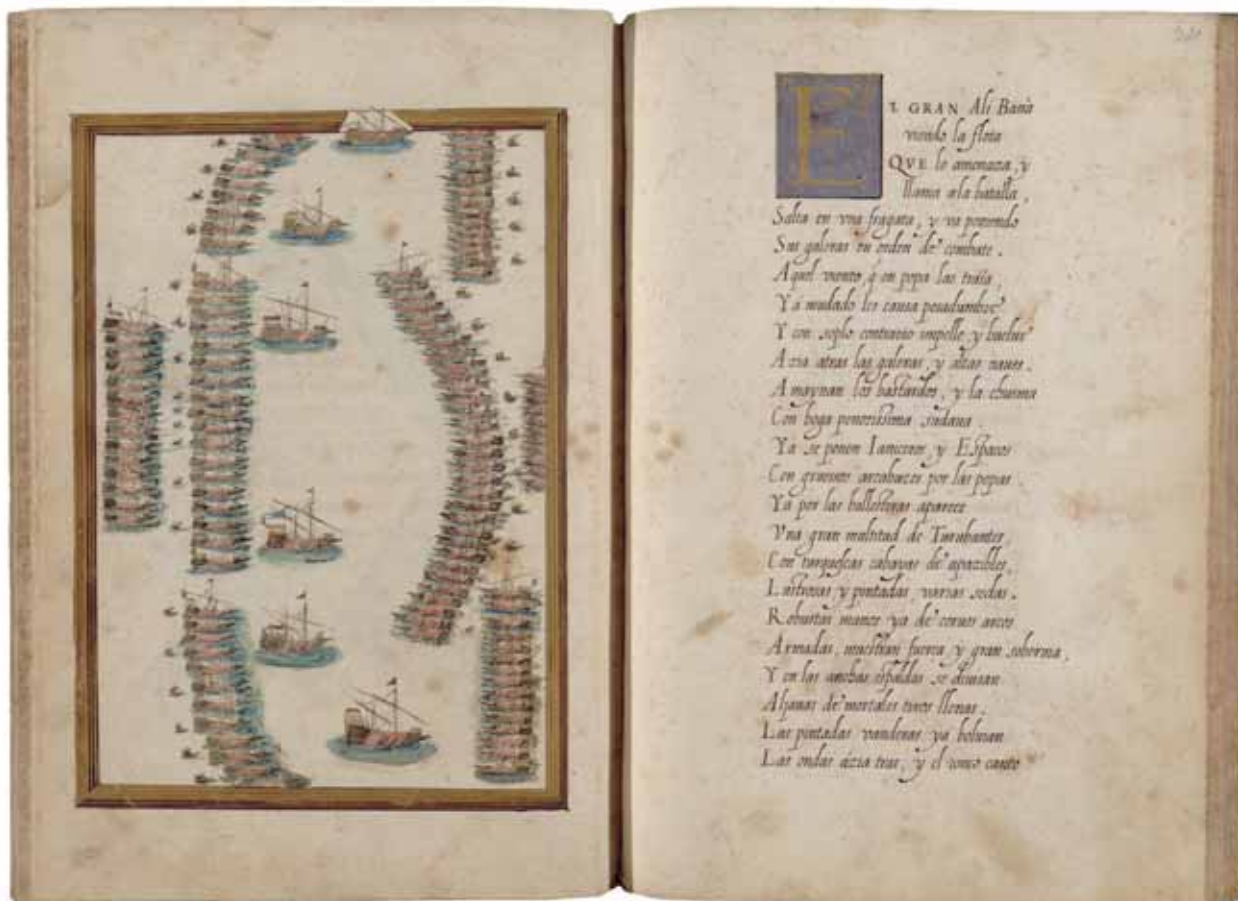 EL GRAN Ali Baxà
viendo la flota
QVE le amenaza, y
llama a la batalla,
Salta en vna fragata, y va poniendo
Sus galeras en orden de combate.
Aquel viento, q̃ en popa las traìa,
Ya mudado les causa pesadumbre
Y con soplo contrario impelle, y buelue
Azia atras las galeras, y altas naues.
Amaynan los bastardos, y la chusma
Con boga penosissima sudaua.
Ya se ponen Ianceros, y Espacos
Con gruesos arcabuzes por las popas.
Ya por las ballesteras aparece
Vna gran multitud de Turubantes,
Con turquescas cabayas de apazibles,
Lustrosas y pintadas varias sedas.
Robustas manos ya de coruos arcos
Armadas, muestran fuerça, y gran soberuia,
Y en las anchas espaldas se diuisan
Aljauas de mortales tiros llenas.
Las pintadas vanderas ya boluian
Las ondas àzia tras, y el ronco canto